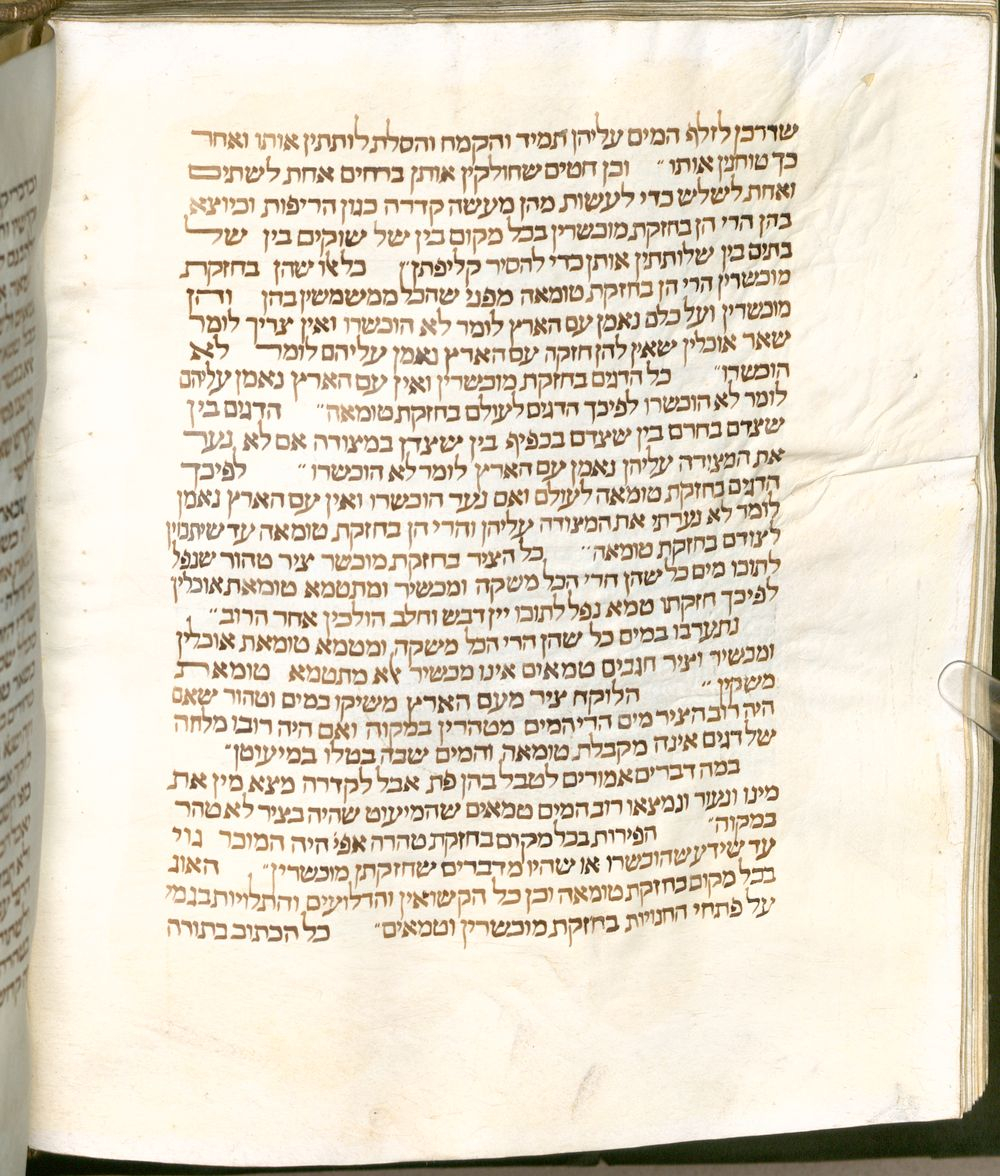 שדרכן לזלף המים עליהן תמיד והקמח והסלת לותתין אותו ואחר
כך טוחנין אותו״ וכן חטים שחולקין אותן ברחים אחת לשתים
ואחת לשלש כדי לעשות מהן מעשה קדרה כגון הריפות וכיוצא
בהן הרי הן בחזקת מוכשרין בכל מקום בין של שוקים בין של
בתים בין שלותתין אותן כדי להסיר קליפתן׃ כל אלו שהן בחזקת
מוכשרין הרי הן בחזקת טומאה מפני שהכל ממשמשין בהן והן
מוכשרין ועל כלם נאמן עם הארץ לומר לא הוכשרו ואין צריך לומר
שאר אוכלין שאין להן חזקה עם הארץ נאמן עליהם לומר לא
הוכשרו״ כל הדגים בחזקת מוכשרין ואין עם הארץ נאמן עליהם
לומר לא הוכשרו לפיכך הדגים לעולם בחזקת טומאה״ הדגים בין
שצדם בחרם בין שצדם בכפיף בין שצדן במצודה אם לא נער
את המצודה עליהן נאמן עם הארץ לומר לא הוכשרו״ לפיכך
הדגים בחזקת טומאה לעולם ואם נער הוכשרו ואין עם הארץ נאמן
לומר לא נערתי את המצודה עליהן והרי הן בחזקת טומאה עד שיתכוין
לצודם בחזקת טומאה״ כל הציר בחזקת מוכשר ציר טהור שנפל
לתוכו מים כל שהן הרי הכל משקה ומכשיר ומתטמא טומאת אוכלין
לפיכך חזקתו טמא נפל לתוכו יין דבש וחלב הולכין אחר הרוב״
נתערבו במים כל שהן הרי הכל משקה ומטמא טומאת אוכלין
ומכשיר וציר חגבים טמאים אינו מכשיר ולא מתטמא טומאת
משקין״ הלוקח ציר מעם הארץ משיקו במים וטהור שאם
היה רוב הציר מים הרי המים מטהרין במקוה ואם היה רובו מלחה
של דגים אינה מקבלת טומאה והמים שבה בטלו במיעוטן״
במה דברים אמורים לטבל בהן פת אבל לקדרה מצא מין את
מינו ונעור ונמצאו רוב המים טמאים שהמיעוט שהיה בציר לא טהר
במקוה״ הפירות בכל מקום בחזקת טהרה אפי׳ היה המוכר גוי
עד שידע שהוכשרו או שהיו מדברים שחזקתן מוכשרין״ האוג
בכל מקום בחזקת טומאה וכן כל הקשואין והדלועים והתלויות בגמי
על פתחי החנויות בחזקת מוכשרין וטמאים״ כל הכתוב בתורה